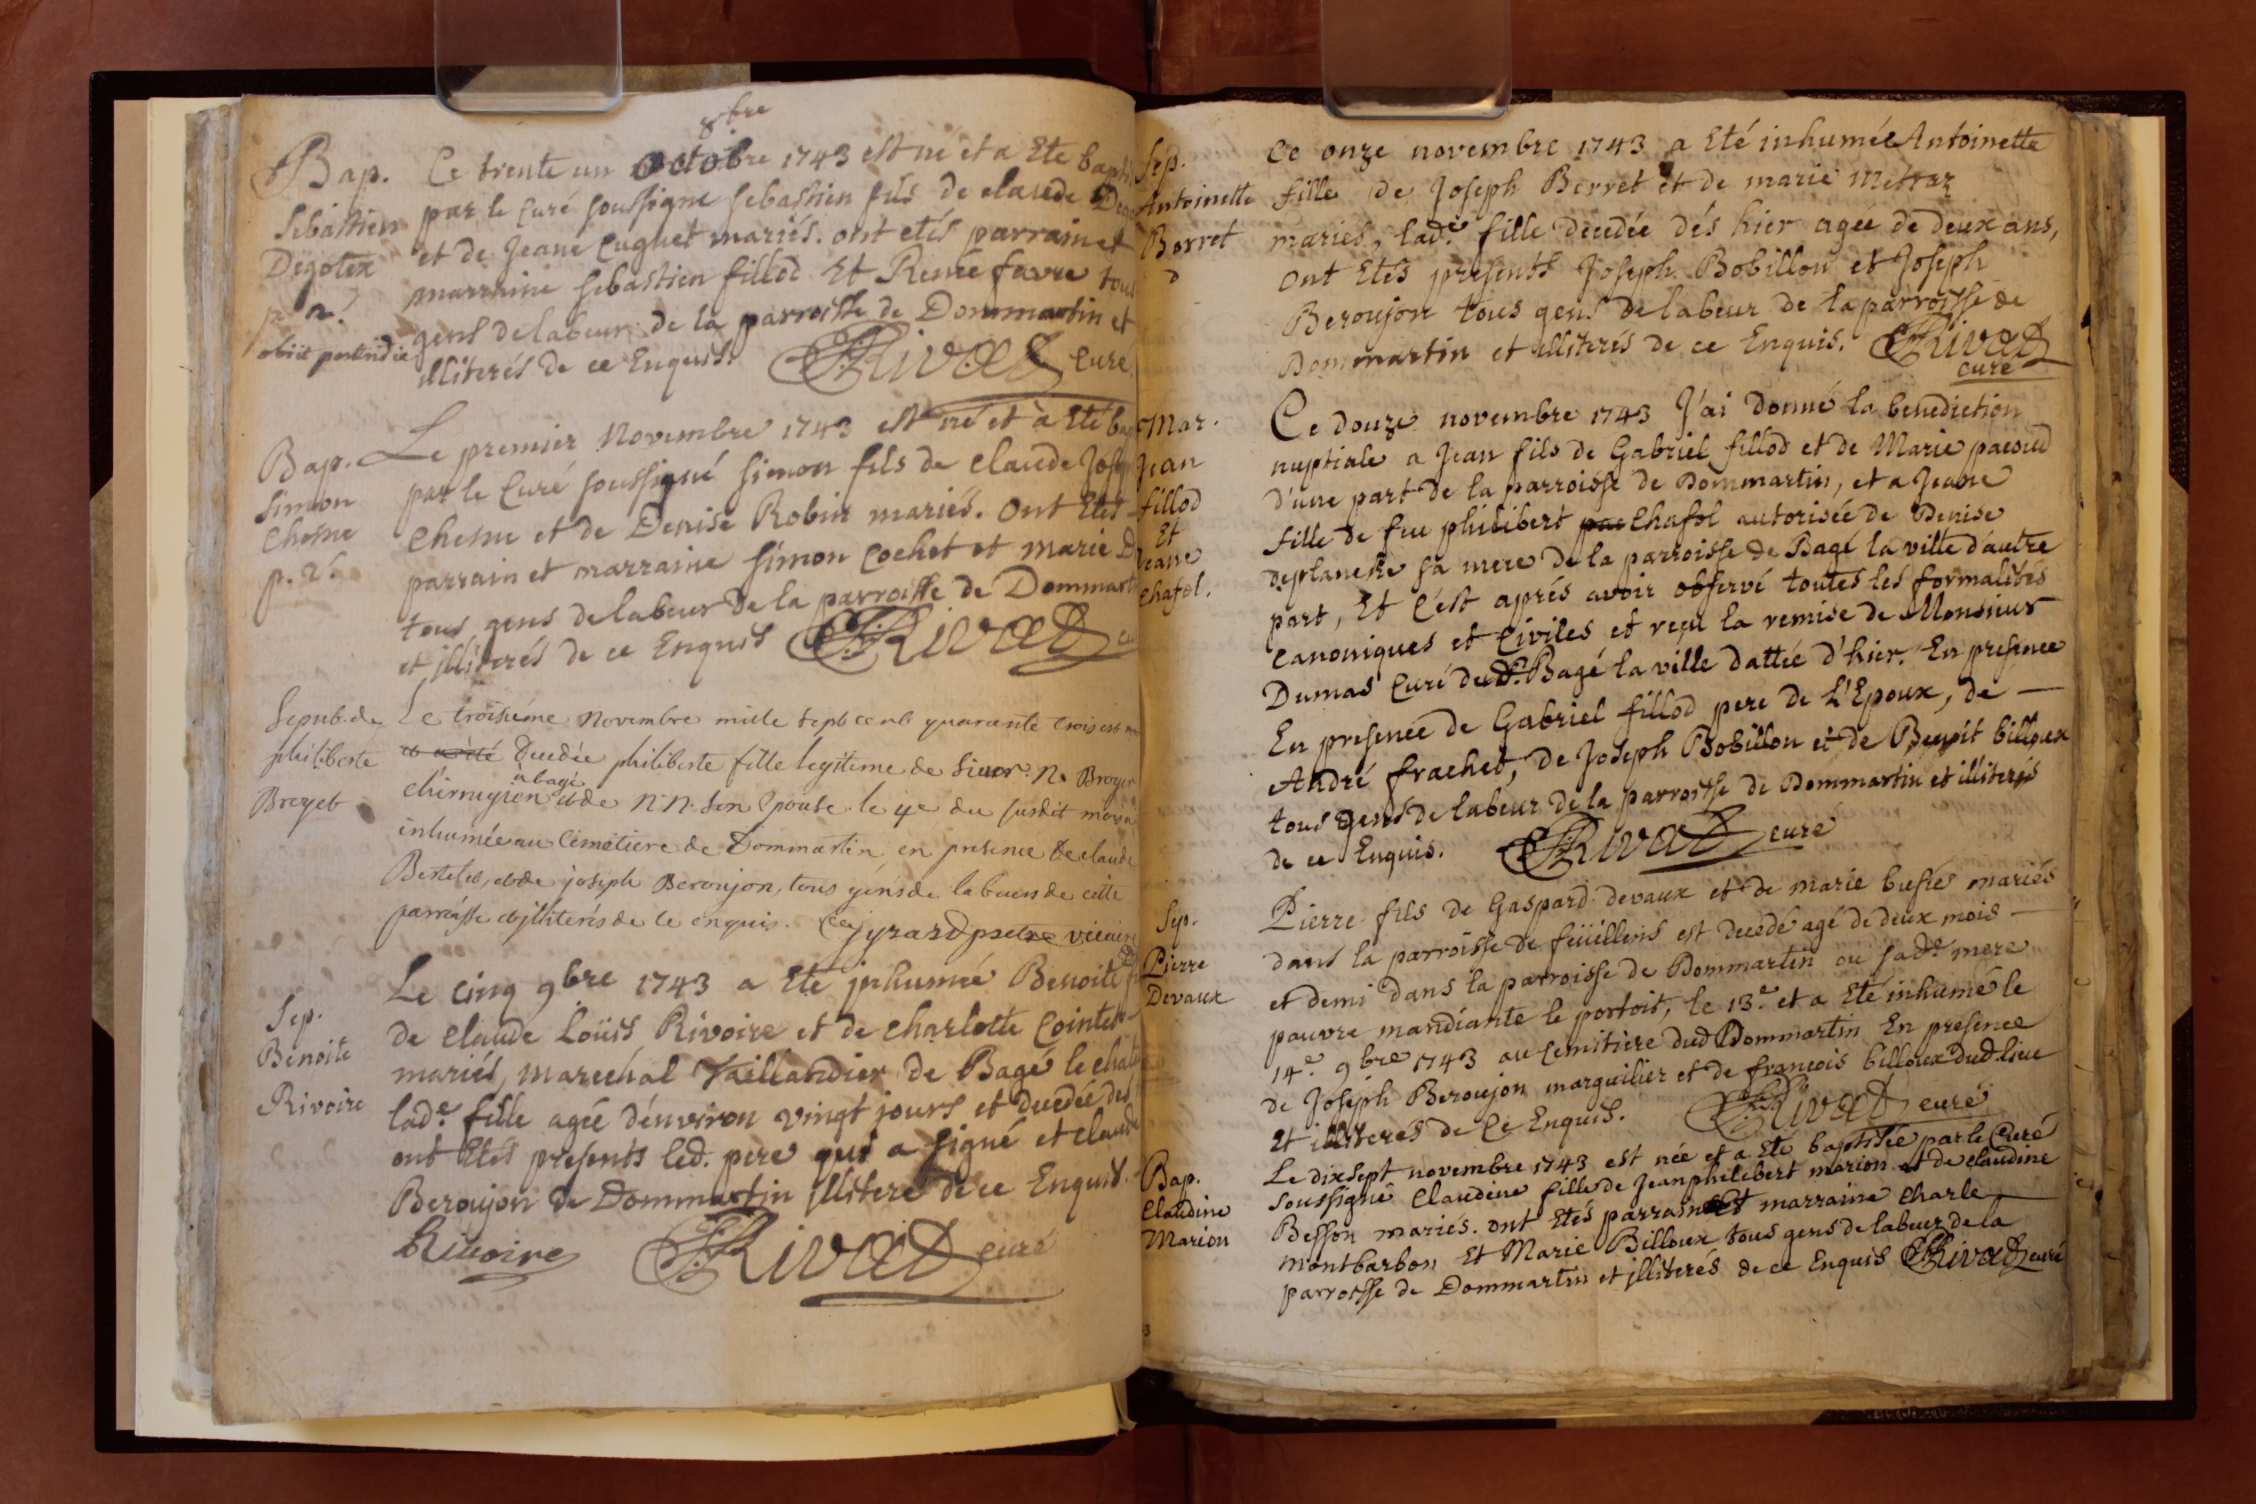 8bre
Bap.
Sebastien
Degotex
p. n.
obiit postridie
Ce trente un Octobre 1743 est né et a Eté bapti
par le Curé soussigné sebastien fils de claude
et de Jeane Cuguet mariés. ont etés parrain et
marraine sebastien fillod Et Renée favre tous
gens de labeur de la parroisse de Dommartin et
illiterés de ce Enquis. Rivat Curé
Bap.
Simon
Chesne
p. n.
Le premier Novembre 1743 est né et a Eté bap
par le Curé soussigné Simon fils de claude Josep
Chesne et de Denise Robin mariés. Ont Etés
parrain et marraine Simon Cochet et marie D
tous gens de labeur de la parroisse de Dommart
et illiterés de ce Enquis Rivat cu
Sepub. de
philiberte
Broyet
Le troisiéme Novembre mille sept cent quarante trois est
et a été decedée philiberte fille legitime de Sieur N. Broyer
à bagé
chirurgien et de N. N. Son Epouse le 4e du susdit mois a
inhumée au Cemetiere de Dommartin en presence de claude
Bertelet, et de joseph Beroujon, tous géns de labeur de cette
parroisse et jlliterés de ce enquis. jyrard pretre vicaire
Sep.
Benoite
Rivoire
Le cinq 9bre 1743 a Eté jnhumée Benoite
de Claude Loüis Rivoire et de Charlotte Cointet
mariés, marechal Taillandier de Bagé le chate
lade. fille agée d'environ vingt jours et decedée des
ont Etés presents led. pere qui a signé et claude
Beroujon de Dommartin jlliteré de ce Enquis.
Rivoire Rivat curé
Sep.
Antoinette
Borret
Ce onze novembre 1743 a Eté inhumée Antoinette
fille de Joseph Berret et de marie Mettraz
mariés, lade. fille decedée dés hier agée de deux ans,
ont Etés presents Joseph Bobillon et Joseph
Beroujon tous gens de labeur de la parroisse de
Dommartin et illiterés de ce Enquis. Rivat
curé
Mar.
Jean
fillod
Et
Jeane
Chafol.
Ce douze novembre 1743 J'ai donné la benediction
nuptiale a Jean fils de Gabriel fillod et de Marie pacoud
d'une part de la parroisse de Dommartin, et a Jeane
fille de feu philibert par Chafol autorisée de Denise
deplanche sa mere de la parroisse de Bagé la ville d'autre
part, Et c'est aprés avoir observé toutes les formalités
Canoniques et Civiles et reçu la remise de Monsieur
Dumas Curé dud. Bagé la ville dattée d'hier. En presence
En presence de Gabriel fillod pere de L'Epoux, de
André frachet, de Joseph Bobillon et de Benoit billoux
tous gens de labeur de la parroisse de Dommartin et illiterés
de ce Enquis. Rivat curé
Sep.
Pierre
Devaux
Pierre fils de Gaspard devaux et de marie bufié mariés
dans la parroisse de feüillens est decedé agé de deux mois
et demi dans la parroisse de Dommartin ou sade. mere
pauvre mandiante le portoit, le 13.e et a Eté inhumé le
14.e 9bre 1743 au cemitiere dud Dommartin En presence
de Joseph Beroujon marguilier et de francois billoux dud. lieu
Et illiterés de Ce Enquis. Rivat curé
Bap.
Claudine
Marion
Le dix sept novembre 1743 est née et a Eté baptisée par le Curé
soussigné Claudine fille de Jean philibert marion et de claudine
Besson mariés. ont Etés parrain Et marraine Charle
montbarbon Et Marie Billoux tous gens de labeur de la
parroisse de Dommartin et jlliterés de ce Enquis Rivat curé